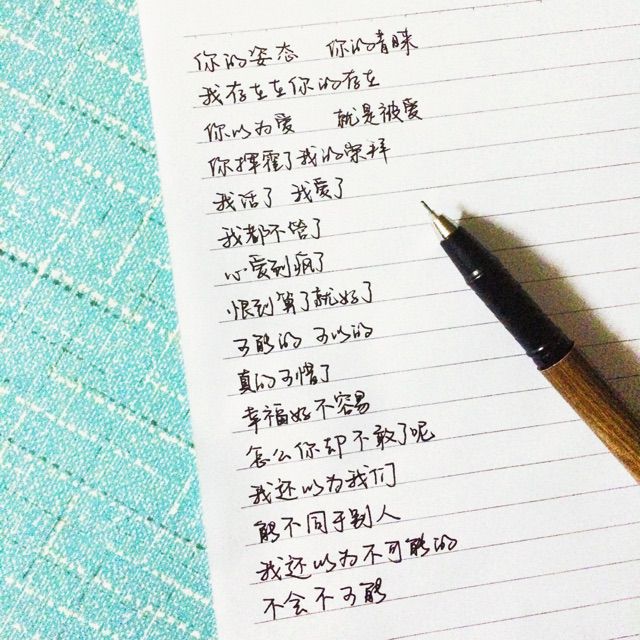 你的姿态 你的青睐
我存在在你的存在
你以为爱 就是被爱
你挥霍了我的崇拜
我活了 我爱了
我都不管了
心爱到疯了
恨到算了就好了
可能的 可以的
真的可惜了
幸福好不容易
怎么你却不敢了呢
我还以为我们
能不同于别人
我还以为不可能的
不会不可能